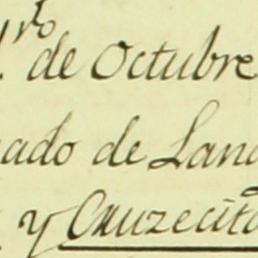 de Octubre
ado de Lan
y Cruzecita